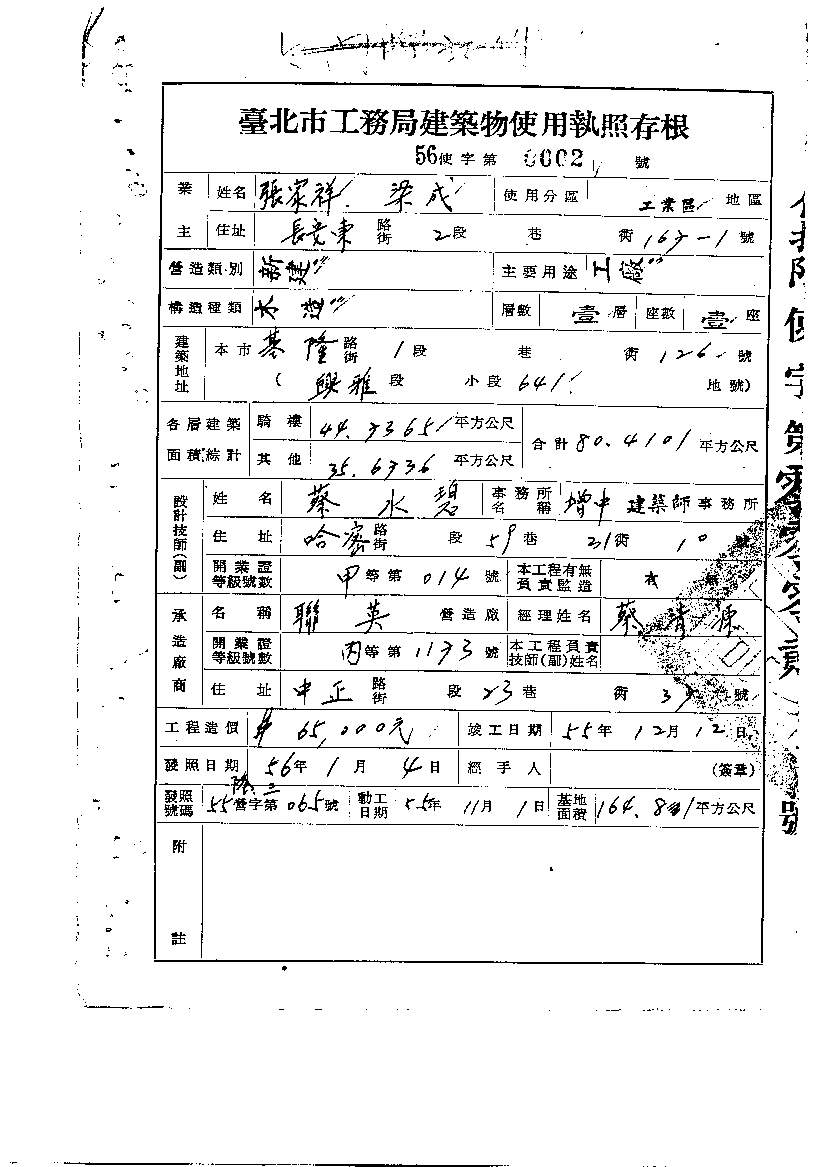 臺北市工務局建築物使用執照存根
56使字第 0002 號
業主 姓名 張家祥 梁成 使用分區 工業區 地區
住址 長安東 路街 2段 巷 街 167-1 號
營造類別 新建 主要用途 工廠
構造種類 木造 層數 壹層 座數 壹座
建築地址 本市 基隆 路街 1段 巷 街 126 號
( 興雅段 小段 641 地號)
各層建築面積綜計 騎樓 44.7365 平方公尺 合計 80.4101 平方公尺
其他 35.6736 平方公尺
設計技師(副) 姓名 蔡水碧 事務所名稱 增中 建築師事務所
住址 哈密 路街 段 59巷 21街 10 號
開業證等級號數 甲等第 014 號 本工程有無負責監造 有 無
承造廠商 名稱 聯英 營造廠 經理姓名 蔡青源
開業證等級號數 丙等第 1173 號 本工程負責技師(副)姓名
住址 中正 路街 段 23巷 街 號
工程造價 65,000元 竣工日期 55年12月12日
發照日期 56年1月4日 經手人 (簽章)
發照號碼 55營字第065號 動工日期 55年11月1日 基地面積 平方公尺
附註
使字第零零零貳號